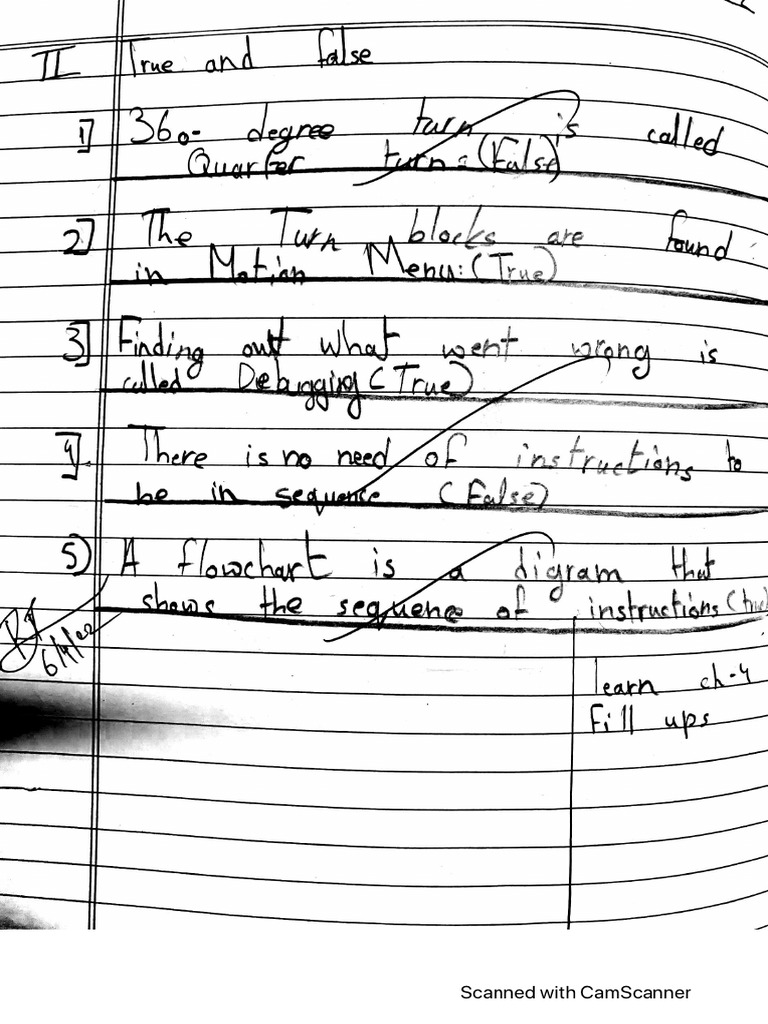 II True and false
1] 360- degree turn is called
Quarter turn = (False)
2] The Turn blocks are found
in Motion Menu: (True)
3] Finding out what went wrong is
called Debugging (True)
4]. There is no need of instructions to
be in sequence (False)
5) A flowchart is a digram that
shows the sequence of instructions (true)
6/4/22
learn ch-4
Fill ups
Scanned with CamScanner